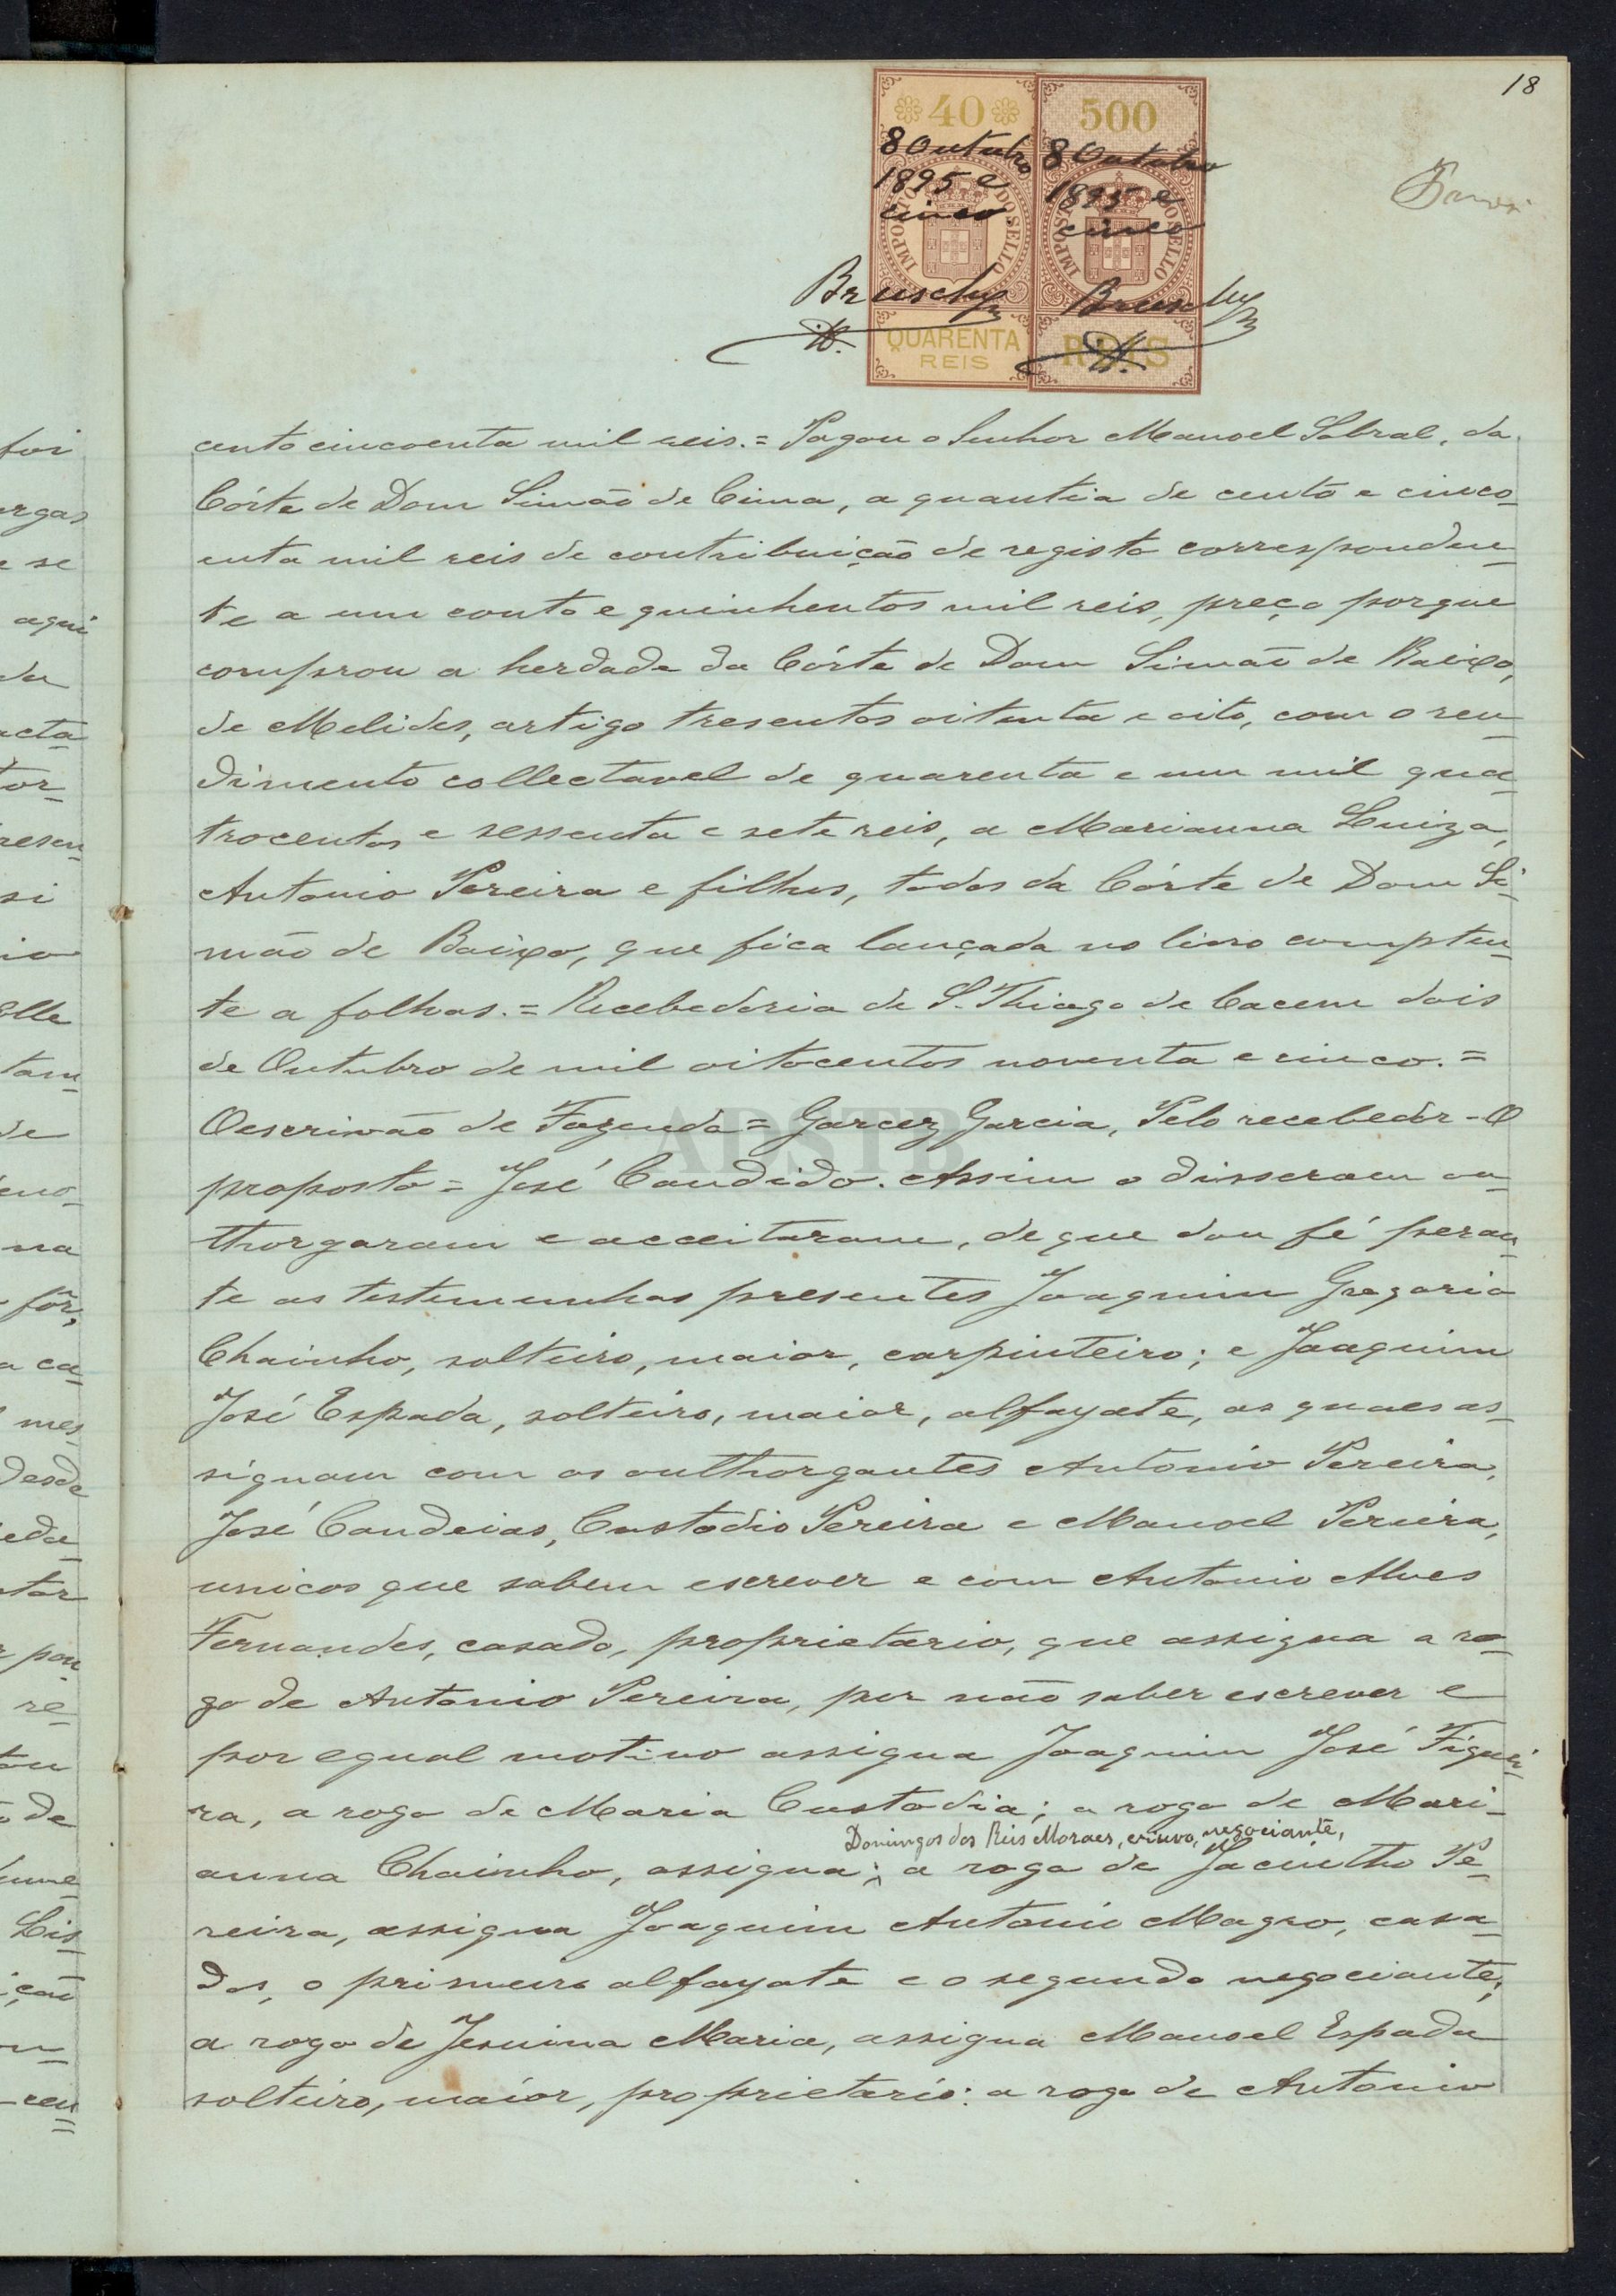 18
40
500
8 Outubro
1895 e
cinco
8 Outubro
1895 e
cinco
IMPOSTO DO SELLO
IMPOSTO DO SELLO
Bruschy
Bruschy
QUARENTA
REIS
REIS
cento cincoenta mil reis.= Pagou o Senhor Manoel Sobral, da
Córte de Dom Simão de Cima, a quantia de cento e cinco-
enta mil reis de contribuição de registo corresponden-
te a um conto e quinhentos mil reis, preço porque
comprou a herdade da Córte de Dom Simão de Baixo,
de Melides, artigo tresentos oitenta e oito, com o ren-
dimento collectavel de quarenta e um mil qua-
trocentos e sessenta e sete reis, a Marianna Luiza,
Antonio Pereira e filhos, todos da Córte de Dom Si-
mão de Baixo, que fica lançada no livro compten-
te a folhas.= Recebedoria de S. Thiago de Cacem dois
de Outubro de mil oitocentos noventa e cinco.=
O escrivão de Fazenda= Garcez Garcia, Pelo recebedor - O
proposto= José Candido. Assim o disseram ou-
thorgaram e acceitaram, de que dou fé peran-
te as testemunhas presentes Joaquim Gregorio
Chainho, solteiro, maior, carpinteiro; e Joaquim
José Espada, solteiro, maior, alfayate, as quaes as-
signam com os outhorgantes Antonio Pereira,
José Candeias, Custodio Pereira e Manoel Pereira,
unicos que sabem escrever e com Antonio Alves
Fernandes, casado, proprietario, que assigna a ro-
go de Antonio Pereira, por não saber escrever e
por egual motivo assigna Joaquim José Figuei-
ra, a rogo de Maria Custodia; a rogo de Mari-
Domingos dos Reis Moraes, viuvo, negociante,
anna Chainho, assigna; a rogo de Jacintho Pe-
reira, assigna Joaquim Antonio Magro, casa-
dos, o primeiro alfayate e o segundo negociante;
a rogo de Jesuina Maria, assigna Manoel Espada
solteiro, maior, proprietario: a rogo de Antonio
ADSTB